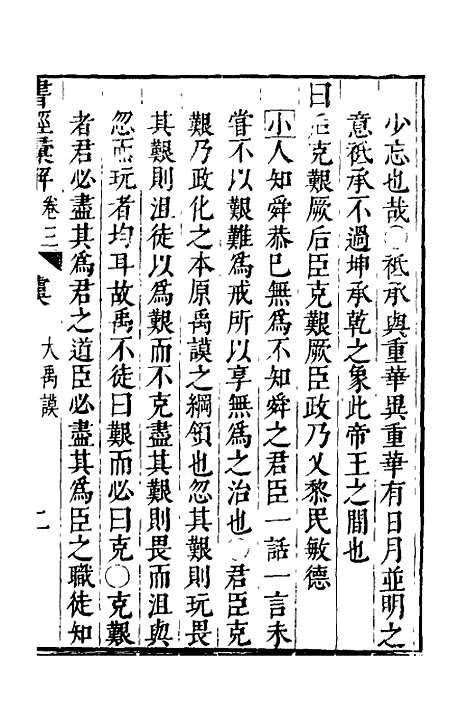 少忘也哉○祗承與重華異重華有日月並明之
意祗承不過坤承乾之象此帝王之間也
曰后克艱厥后臣克艱厥臣政乃乂黎民敏德
小人知舜恭己無為不知舜之君臣一話一言未
嘗不以艱難為戒所以享無為之治也○君臣克
艱乃政化之本原禹謨之綱領也忽其艱則玩畏
其艱則沮徒以為艱而不克盡其艱則畏而沮與
忽而玩者均耳故禹不徒曰艱而必曰克○克艱
者君必盡其為君之道臣必盡其為臣之職徒知
書經彙解 卷三 虞 大禹謨 二